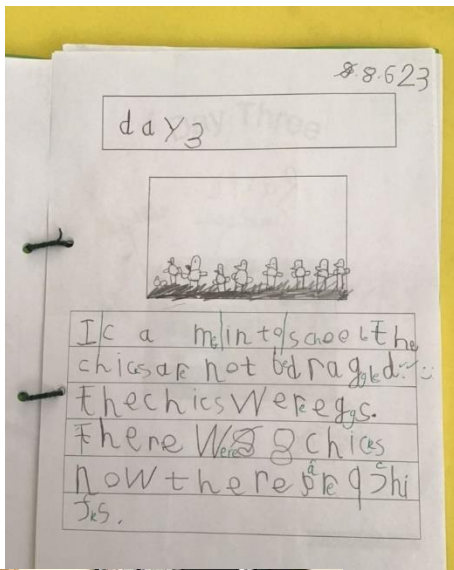 8.8.623
day3
Ic a me in to school the
chicks are not bedraggled
the chics were eggs.
there were 8 chicks
now there are 9 chi
cks.